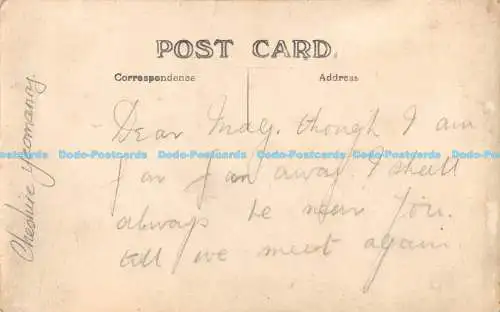 POST CARD.
Correspondence Address
Cheshire yeomanry.
Dear Mag. though I am
far far away I shall
always be near you.
till we meet again
Dodo-Postcards Dodo-Postcards Dodo-Postcards Dodo-Postcards Dodo-Postcards